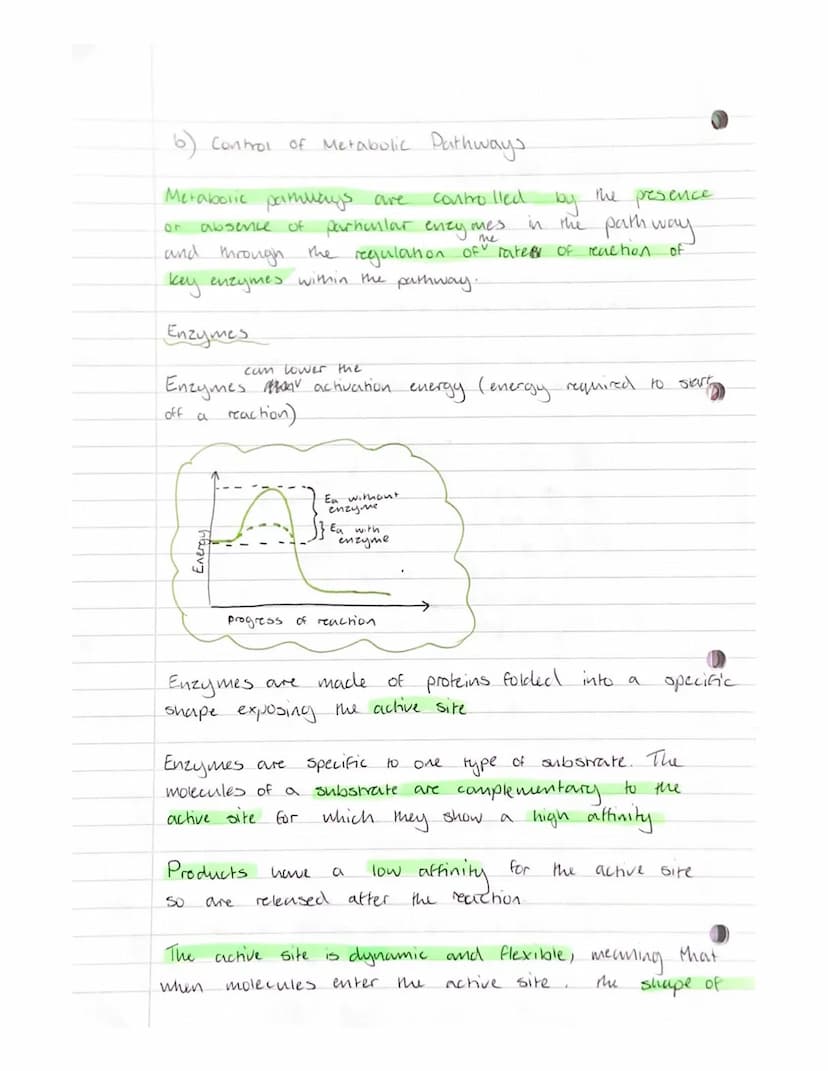 b) Control of Metabolic Pathways
Metabolic pathways are controlled by the presence
or absence of particular enzymes in the pathway
and through the regulation of the rate of reaction of
key enzymes within the pathway.
Enzymes
can lower the
Enzymes activation energy (energy required to start
off a reaction)
Ea without
enzyme
Ea with
enzyme
Energy
Progress of reaction
Enzymes are made of proteins folded into a specific
shape exposing the active site
Enzymes are specific to one type of substrate. The
molecules of a substrate are complementary to the
active site for which they show a high affinity
Products have a low affinity for the active site
so are released after the reaction.
The active site is dynamic and flexible, meaning that
when molecules enter the active site, the shape of